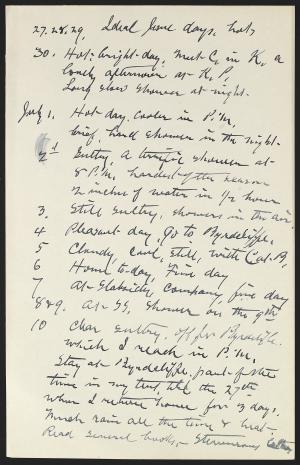 27. 28. 29, Ideal June days, hot,
30. Hot: bright day, meet C, in K, a
lovely afternoon at K. P.
Long slow shower at night.
July 1. Hot day, cooler in P.M.,
brief, hard shower in the night.
2d Sultry, A terrific shower at
8 P.M. hardest of the season
2 inches of water in 1/2 hour
3. Still sultry, showers in the air
4 Pleasant day, go to Byrdcliffe,
5 Cloudy, cool, still, with C. at B,
6 Home to-day, Fine day
7 At Slabsides, company, fine day
8 & 9. At SS, Shower on the 9th
10 Clear sultry, off for Byrdcliffe,
which I reach in P.M.
Stay at Byrdcliffe part of the
time in my tent, till the 27th
when I return home for 3 days.
Much rain all the time & heat.
Read several books, - Stevenson's